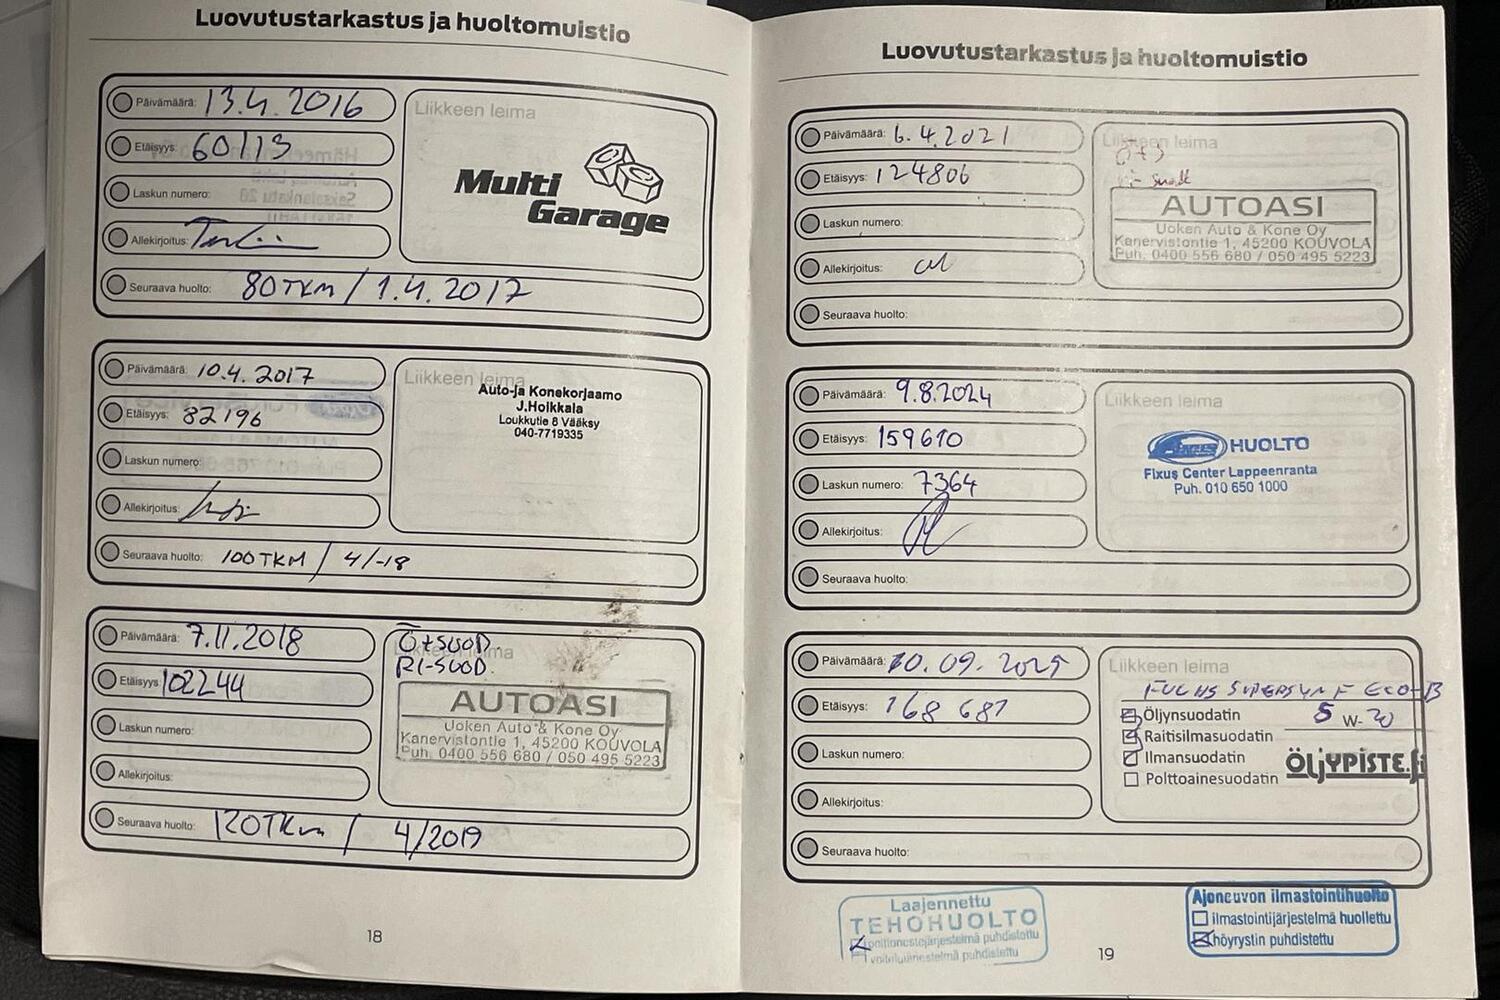 Luovutustarkastus ja huoltomuistio
Päivämäärä: 13.4.2016
Liikkeen leima
Etäisyys: 60113
Multi
Garage
Laskun numero:
Allekirjoitus:
Seuraava huolto: 80TKM / 1.4.2017
Päivämäärä: 10.4.2017
Liikkeen leima
Auto-ja Konekorjaamo
J.Hoikkala
Loukkutie 8 Vääksy
040-7719335
Etäisyys: 82196
Laskun numero:
Allekirjoitus:
Seuraava huolto: 100TKM / 4/-18
Päivämäärä: 7.11.2018
Ö+SUOD.
Liikkeen leima
RI-SUOD.
Etäisyys: 102244
AUTOASI
Uoken Auto & Kone Oy
Kanervistontie 1, 45200 KOUVOLA
Puh. 0400 556 680 / 050 495 5223
Laskun numero:
Allekirjoitus:
Seuraava huolto: 120TKm / 4/2019
18
Luovutustarkastus ja huoltomuistio
Päivämäärä: 6.4.2021
Liikkeen leima
Etäisyys: 124806
AUTOASI
Uoken Auto & Kone Oy
Kanervistontie 1, 45200 KOUVOLA
Puh. 0400 556 680 / 050 495 5223
Laskun numero:
Allekirjoitus:
Seuraava huolto:
Päivämäärä: 9.8.2024
Liikkeen leima
Etäisyys: 159610
HUOLTO
Fixus Center Lappeenranta
Puh. 010 650 1000
Laskun numero: 7364
Allekirjoitus:
Seuraava huolto:
Päivämäärä: 10.09.2025
Liikkeen leima
FUCHS SUPERSYN F ECO-B
Etäisyys: 168 681
Öljynsuodatin 5 W-20
Raitisilmasuodatin
Ilmansuodatin
Polttoainesuodatin
ÖLJYPISTE.fi
Laskun numero:
Allekirjoitus:
Seuraava huolto:
Laajennettu
TEHOHUOLTO
polttonestejärjestelmä puhdistettu
voitelujärjestelmä puhdistettu
Ajoneuvon ilmastointihuolto
ilmastointijärjestelmä huollettu
höyrystin puhdistettu
19